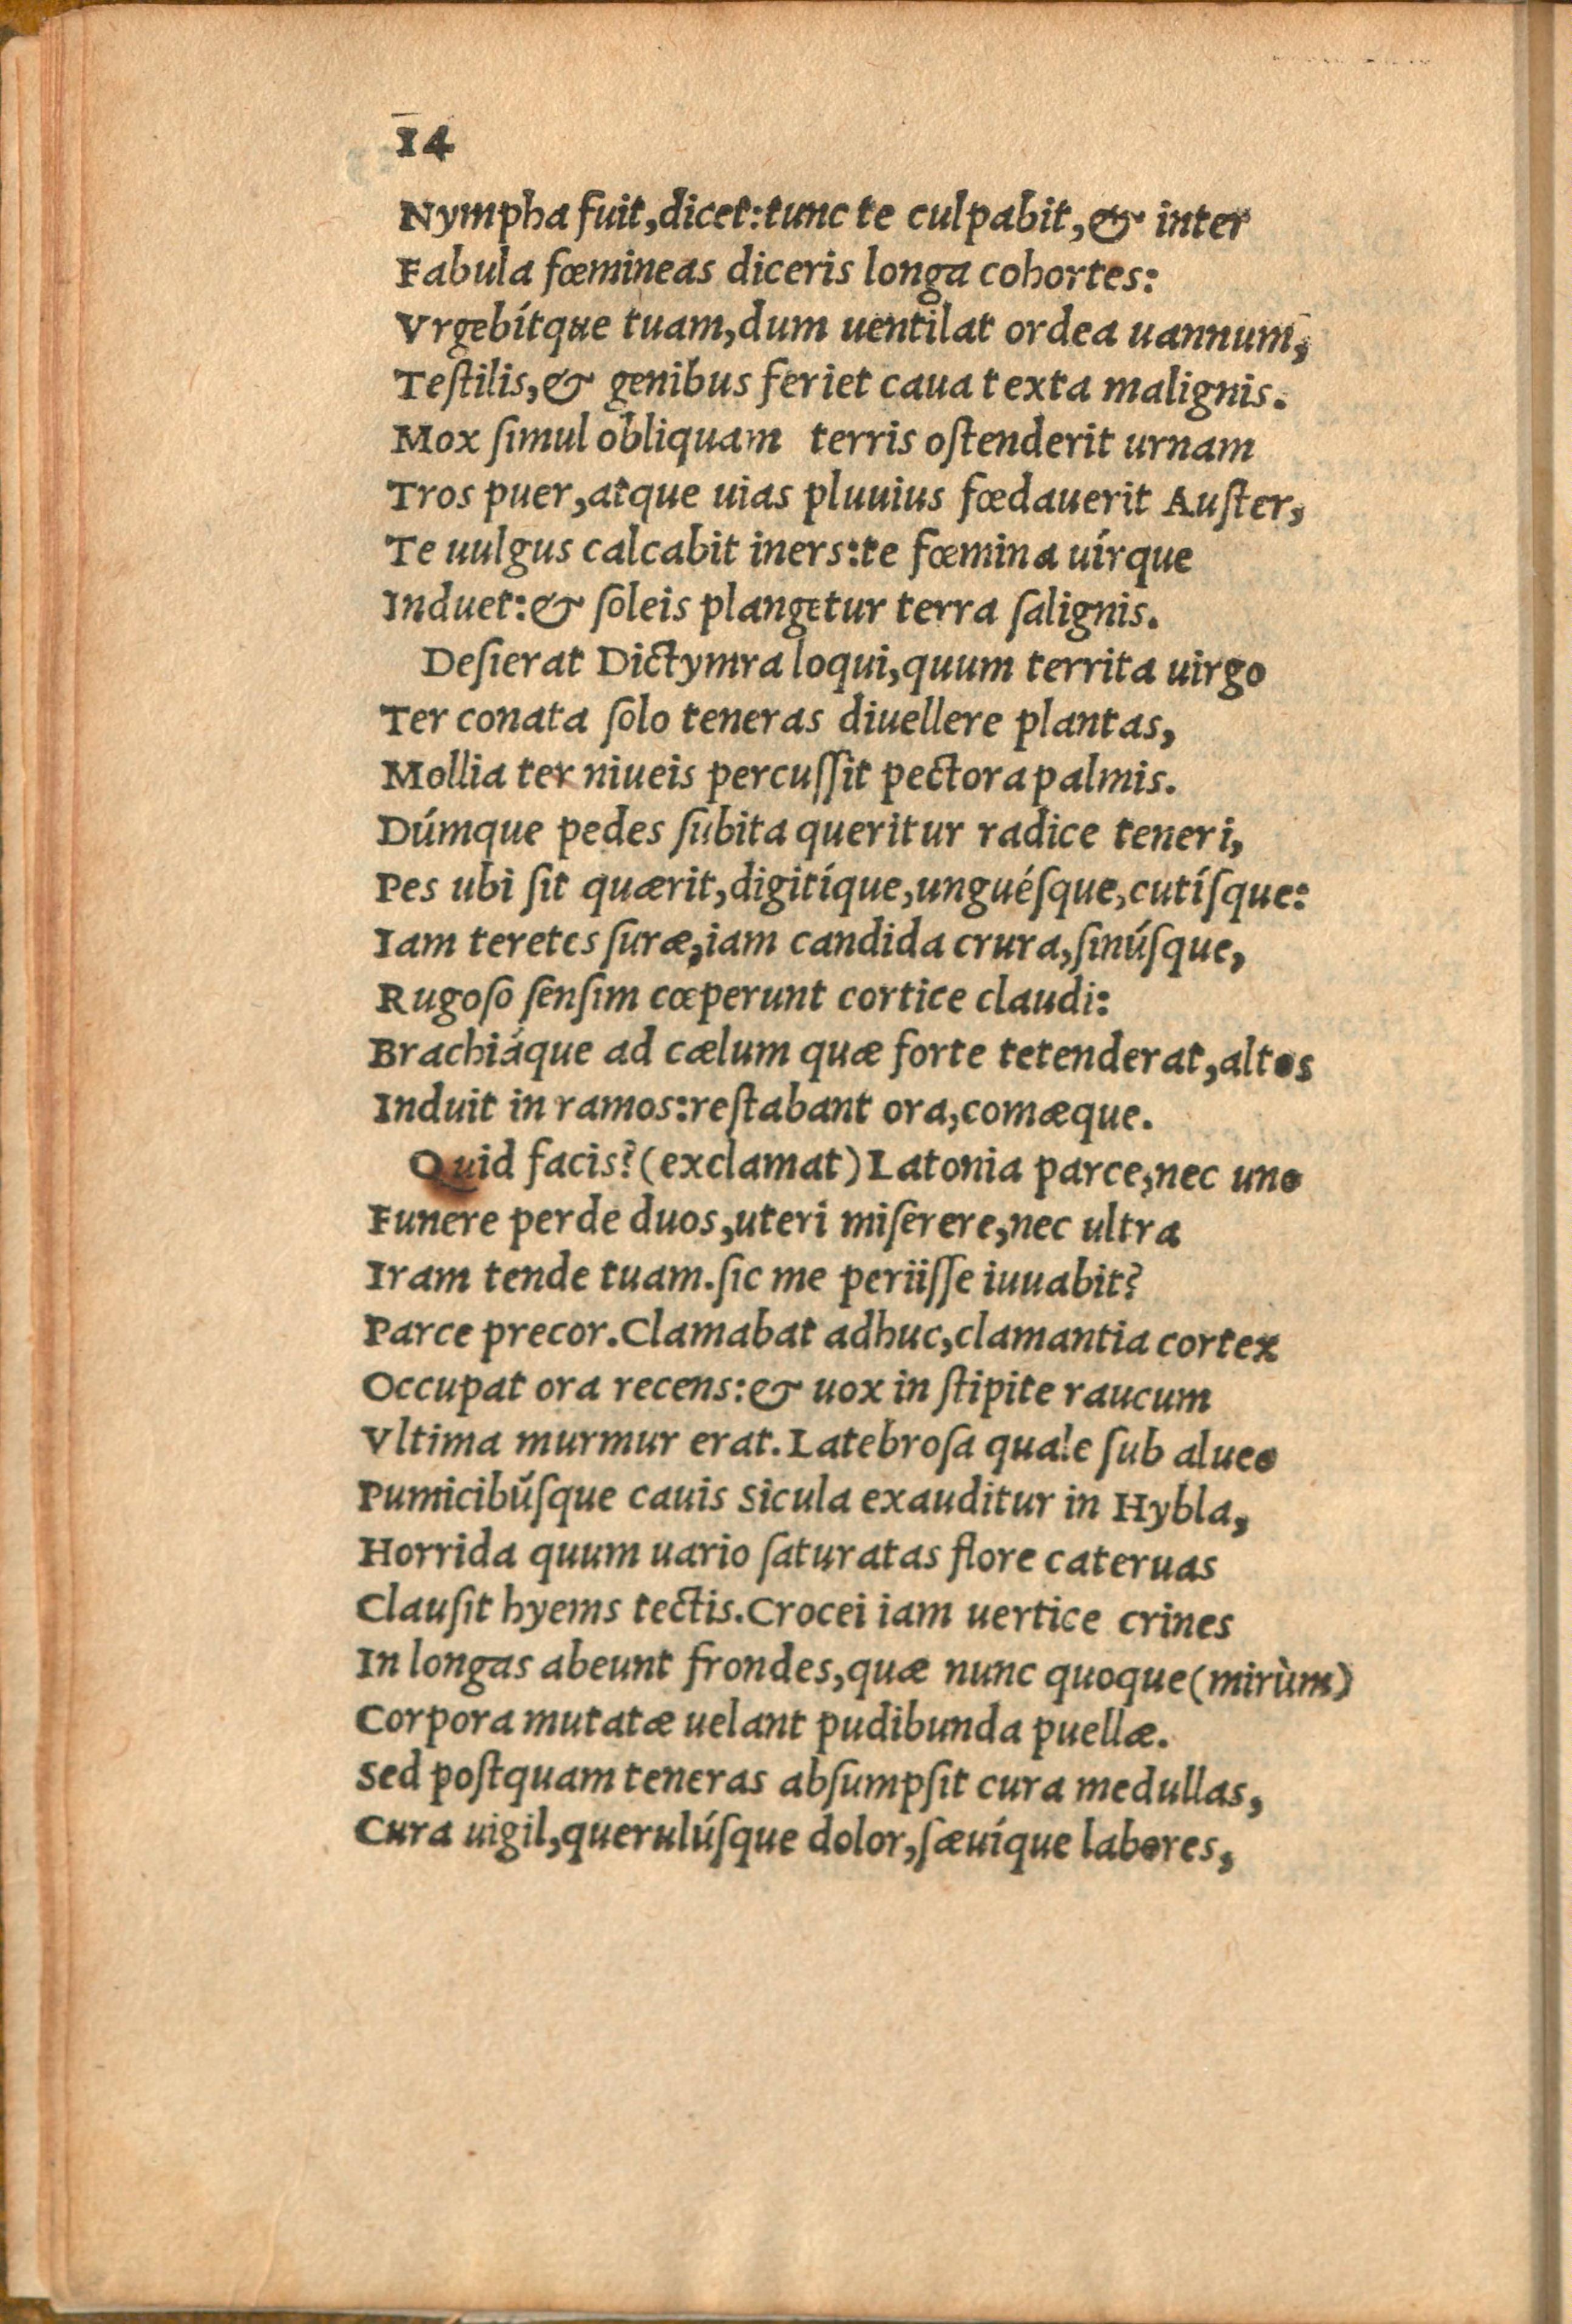 14
Nympha fuit,dicet:tunc te culpabit,& inter
Fabula fœmineas diceris longa cohortes:
Vrgebítque tuam,dum uentilat ordea uannum,
Teſtilis,& genibus feriet caua texta malignis.
Mox ſimul obliquam terris oſtenderit urnam
Tros puer,atque uias pluuius fœdauerit Auſter,
Te uulgus calcabit iners:te fœmina uírque
Induet:& ſoleis plangetur terra ſalignis.
Deſierat Dictymra loqui,quum territa uirgo
Ter conata ſolo teneras diuellere plantas,
Mollia ter niueis percuſſit pectora palmis.
Dúmque pedes ſubita queritur radice teneri,
Pes ubi ſit quærit,digitíque,unguéſque,cutíſque:
Iam teretes ſuræ,iam candida crura,ſinúſque,
Rugoſo ſenſim cœperunt cortice claudi:
Brachiáque ad cælum quæ forte tetenderat,altos
Induit in ramos:reſtabant ora,comæque.
Quid facis?(exclamat)Latonia parce,nec uno
Funere perde duos,uteri miſerere,nec ultra
Iram tende tuam.ſic me periiſſe iuuabit?
Parce precor.Clamabat adhuc,clamantia cortex
Occupat ora recens:& uox in ſtipite raucum
Vltima murmur erat.Latebroſa quale ſub alueo
Pumicibúſque cauis Sicula exauditur in Hybla,
Horrida quum uario ſaturatas flore cateruas
Clauſit hyems tectis.Crocei iam uertice crines
In longas abeunt frondes,quæ nunc quoque(mirùm)
Corpora mutatæ uelant pudibunda puellæ.
Sed poſtquam teneras abſumpſit cura medullas,
Cura uigil,querulúſque dolor,ſæuíque labores,